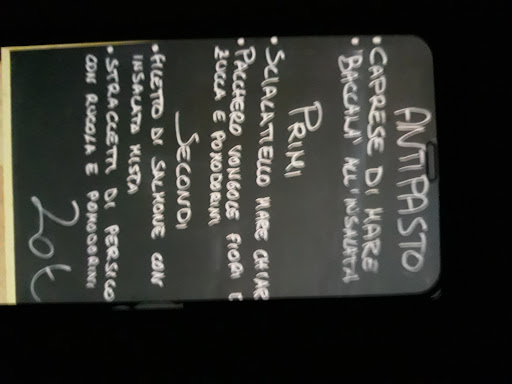 ANTIPASTO
• CAPRESE DI MARE
• BACCALA' ALL'INSALATA
PRIMI
• SCIALATIELLO MARE CHIAR
• PACCHERO VONGOLE FIORI
ZUCCA E POMODORINI
SECONDI
• FILETTO DI SALMONE CON
INSALATA MISTA
• STRACCETTI DI PERSICO
CON RUCOLA E POMODORINI
20€